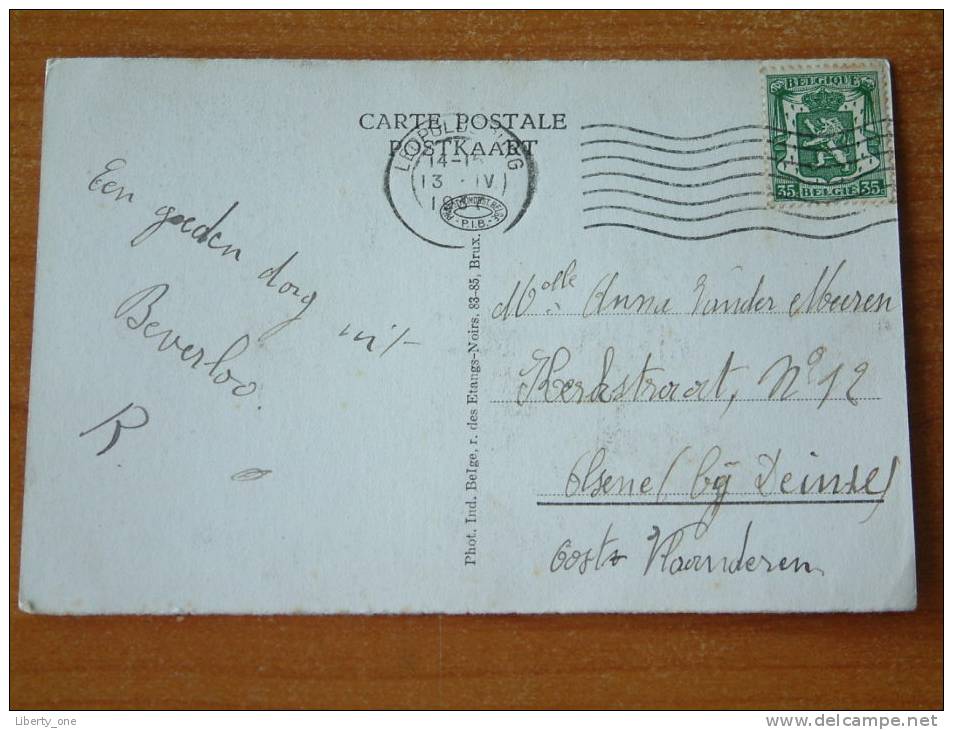 CARTE POSTALE
POSTKAART
14-15
13 IV
P.I.B.
BELGIQUE
35 BELGIE 35
Een goeden dag uit
Beverloo.
R
Phot. Ind. Belge, r. des Etangs-Noirs, 83-85, Brux.
Melle Anna Vander Meeren
Kerkstraat, N° 12
Olsene (bij Deinze)
Oost-Vlaanderen
Liberty_one
www.delcampe.net